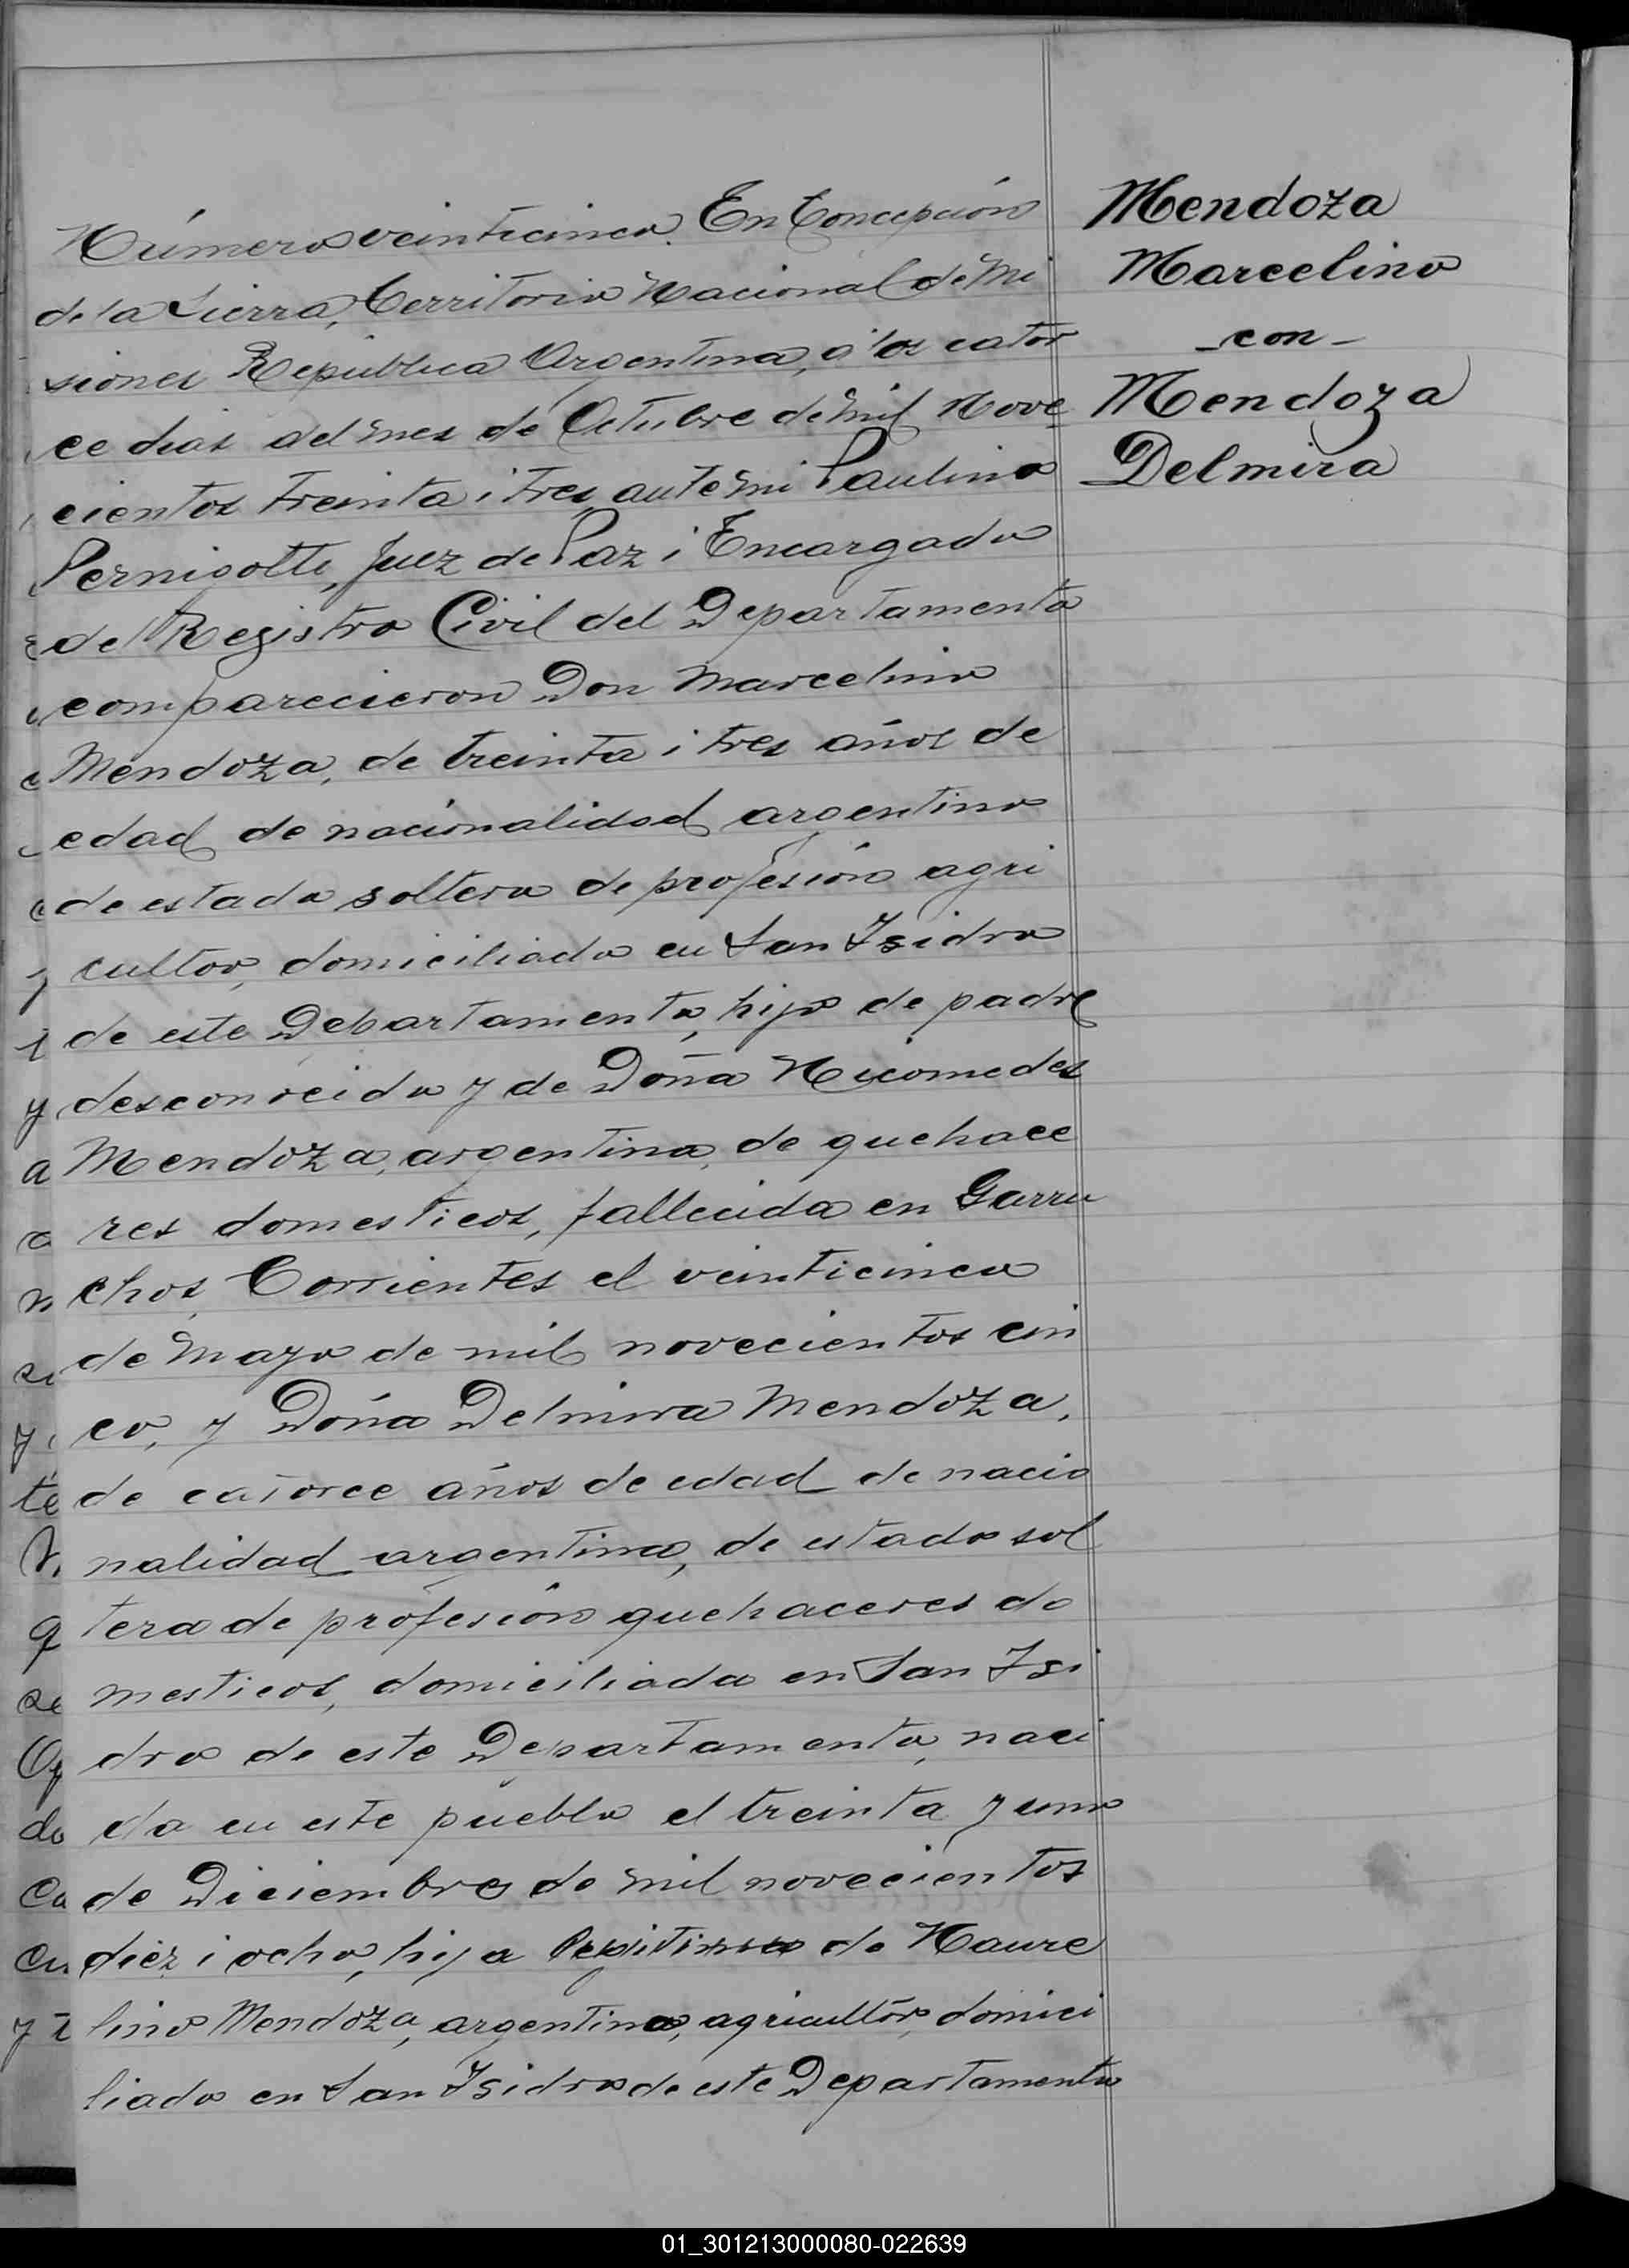 Número veinticinco. En Concepción
de la Sierra, Territorio Nacional de Mi
siones República Argentina, a los cator
ce dias del mes de Octubre de mil Nove
cientos treinta i tres, ante mi Paulino
Pernigotti, Juez de Paz i Encargado
del Registro Civil del Departamento
comparecieron Don Marcelino
Mendoza, de treinta i tres años de
edad de nacionalidad argentino
de estado soltero de profesión agri
cultor, domiciliado en San Isidro
de este Departamento, hijo de padre
desconocido y de Doña Nicomedes
Mendoza, argentina, de quehace
res domesticos, fallecida en Garru
chos, Corrientes el veinticinco
de Mayo de mil novecientos cin
co, y Doña Delmira Mendoza,
de catorce años de edad de nacio
nalidad argentina, de estado sol
tera de profesión quehaceres do
mesticos, domiciliada en San Isi
dro de este Departamento, naci
da en este pueblo el treinta y uno
de Diciembre de mil novecientos
diez i ocho, hija legitima de Maure
lino Mendoza, argentino, agricultor, domici
liado en San Isidro de este Departamento
Mendoza
Marcelino
-con-
Mendoza
Delmira
01_301213000080-022639